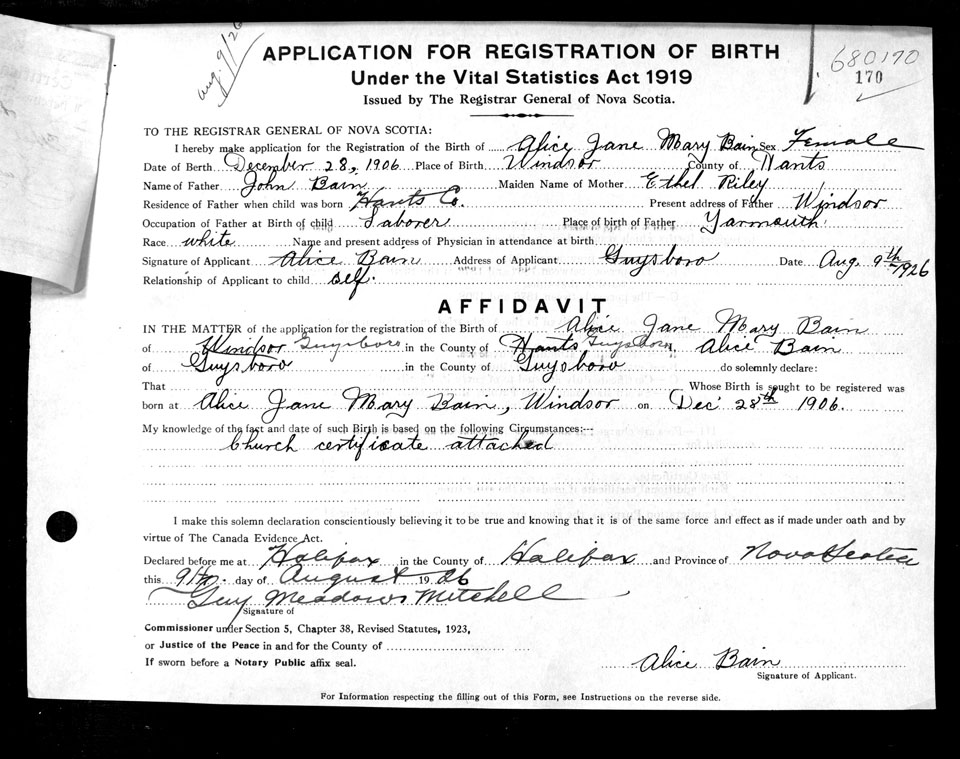 Aug. 9/26
680170
170
APPLICATION FOR REGISTRATION OF BIRTH
Under the Vital Statistics Act 1919
Issued by The Registrar General of Nova Scotia.
TO THE REGISTRAR GENERAL OF NOVA SCOTIA:
I hereby make application for the Registration of the Birth of Alice Jane Mary Bain Sex Female
Date of Birth December 28, 1906 Place of Birth Windsor County of Hants
Name of Father John Bain Maiden Name of Mother Ethel Riley
Residence of Father when child was born Hants Co. Present address of Father Windsor
Occupation of Father at Birth of child Laborer Place of birth of Father Yarmouth
Race white Name and present address of Physician in attendance at birth
Signature of Applicant Alice Bain Address of Applicant Guysboro Date Aug. 9th 1926
Relationship of Applicant to child self.
AFFIDAVIT
IN THE MATTER of the application for the registration of the Birth of Alice Jane Mary Bain
of Windsor Guysboro in the County of Hants Guysboro, Alice Bain
of Guysboro in the County of Guysboro do solemnly declare:
That Whose Birth is sought to be registered was
born at Alice Jane Mary Bain, Windsor on Dec 28th 1906.
My knowledge of the fact and date of such Birth is based on the following Circumstances:--
Church certificate attached
I make this solemn declaration conscientiously believing it to be true and knowing that it is of the same force and effect as if made under oath and by
virtue of The Canada Evidence Act.
Declared before me at Halifax in the County of Halifax and Province of Nova Scotia
this 9th. day of August 1926
Guy Meadows Mitchell
Signature of
Commissioner under Section 5, Chapter 38, Revised Statutes, 1923,
or Justice of the Peace in and for the County of
If sworn before a Notary Public affix seal.
Alice Bain
Signature of Applicant.
For Information respecting the filling out of this Form, see Instructions on the reverse side.